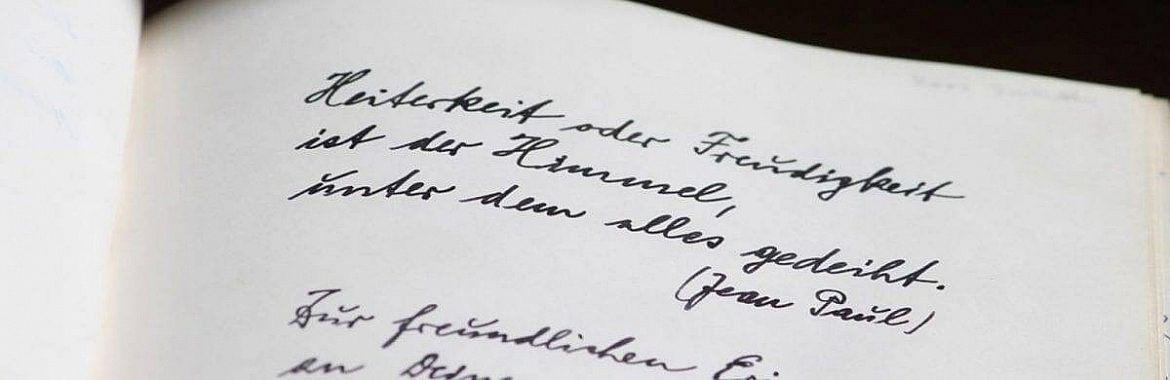 Heiterkeit oder Freudigkeit
ist der Himmel,
unter dem alles gedeiht.
(Jean Paul)
Zur freundlichen
an